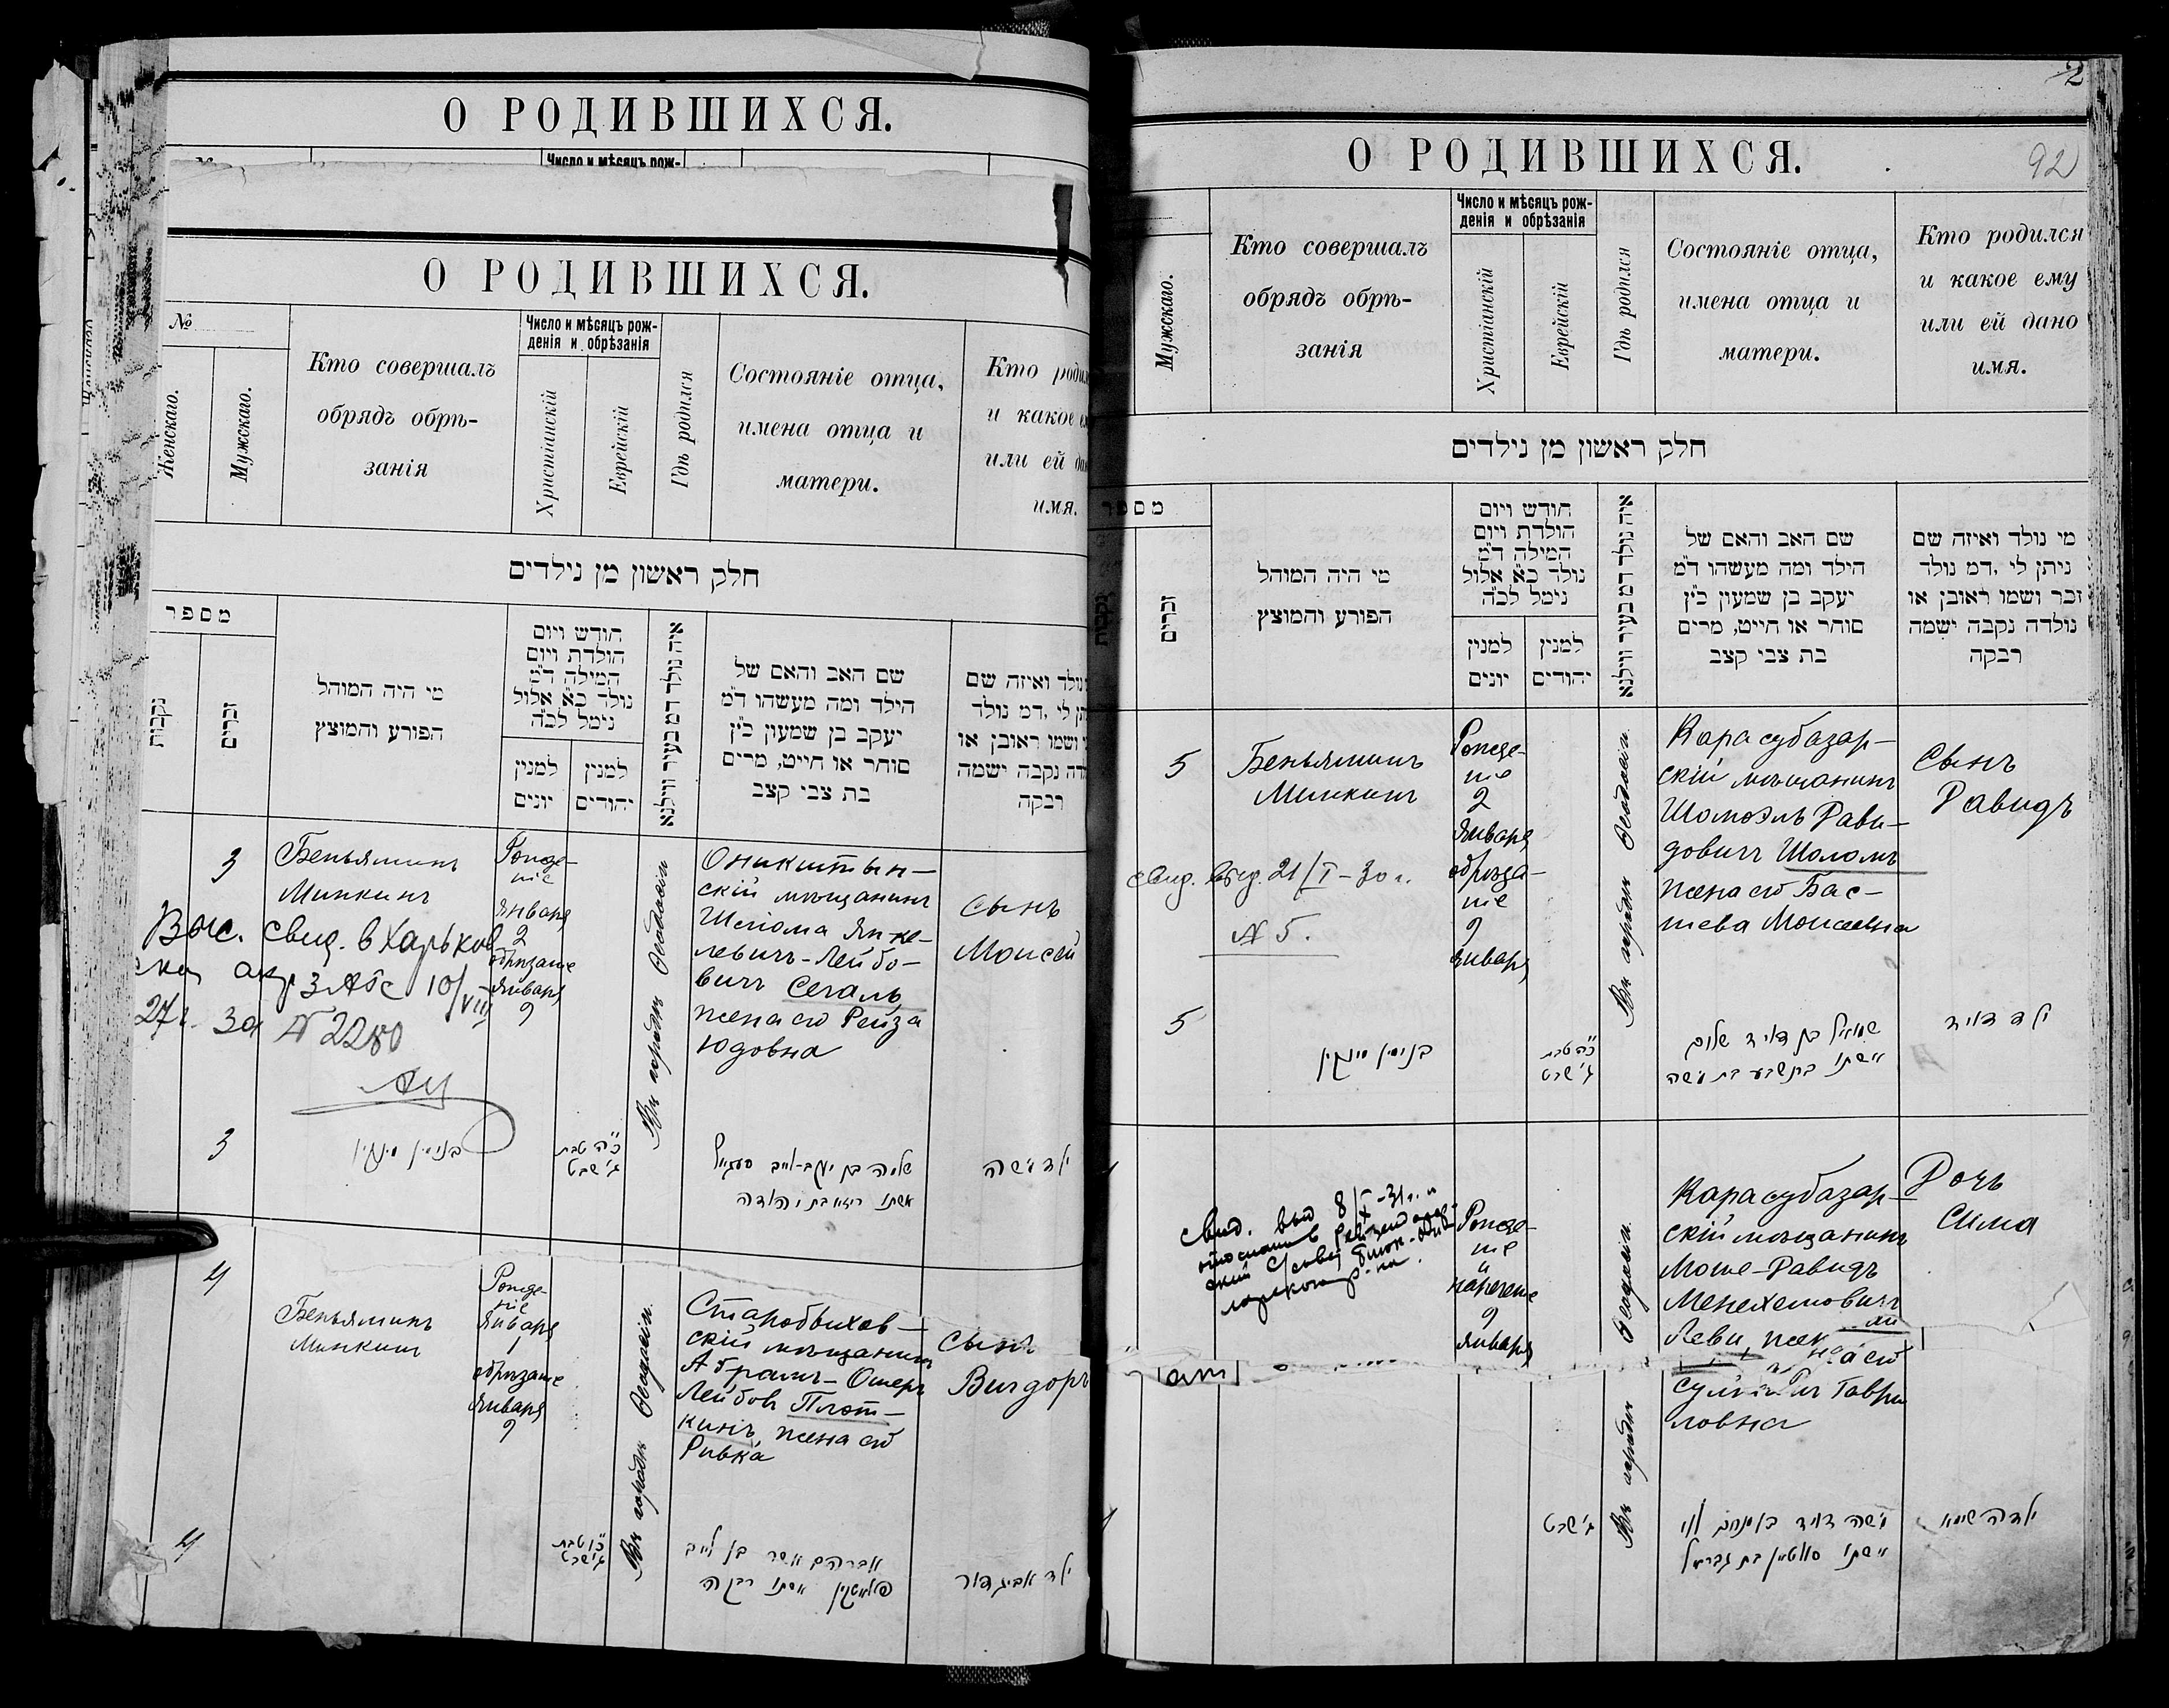 О РОДИВШИХСЯ.
Число и мѣсяцъ рож-
О РОДИВШИХСЯ.
№
Женскаго.
Мужскаго.
Кто совершалъ
обрядъ обрѣ-
занія
Число и мѣсяцъ рож-
денія и обрѣзанія
Христіанскій
Еврейскій
Гдѣ родился
Состояніе отца,
имена отца и
матери.
Кто родил
и какое е
или ей да
имя.
חלק ראשון מן נילדים
מספר
נקבות
זכרים
מי היה המוהל
הפורע והמוצץ
חודש ויום
הולדת ויום
המילה ד״מ
נולד כ״א אלול
נימל לכ״ה
למנין
יונים
למנין
יהודים
איה נולד דמ בעיר ווילנא
שם האב והאם של
הילד ומה מעשהו ד״מ
יעקב בן שמעון כ״ץ
סוחר או חייט, מרים
בת צבי קצב
נולד ואיזה שם
תן לי ,דמ נולד
ושמו ראובן או
דה נקבה ישמה
רבקה
3
Беньяминъ
Минкинъ
Рожде-
ніе
января
2
обрѣзаніе
января
9
Въ городѣ Ѳеодосіи
Оникштын-
скій мѣщанинъ
Шлома Янке-
левичъ-Лейбо-
вичъ Сегаль,
жена его Рейза
Юдовна
Сынъ
Моисей
Выс. свид. в Харьков
10/VIII
27г. за № 2280
3
בנימין מינקין
כ״ה טבת
ג׳ שבט
שלמה בן יעקב-לייב סעגאל
אשתו רייזא בת יהודה
ילד משה
4
Беньяминъ
Минкинъ
Рожде-
ніе
января
1
обрѣзаніе
января
9
Въ городѣ Ѳеодосіи.
Старобыхов-
скій мѣщанинъ
Абрамъ-Ошеръ
Лейбовъ Плот-
кинъ, жена его
Ривка
Сынъ
Вигдоръ
4
כ״ו טבת
ג׳ שבט
אברהם אשר בן לייב
פלאטקין אשתו רבקה
ילד אביגדור
2
О РОДИВШИХСЯ.
92
Мужскаго.
Кто совершалъ
обрядъ обрѣ-
занія
Число и мѣсяцъ рож-
денія и обрѣзанія
Христіанскій
Еврейскій
Гдѣ родился
Состояніе отца,
имена отца и
матери.
Кто родился
и какое ему
или ей дано
имя.
חלק ראשון מן נילדים
מספר
נקבות
זכרים
מי היה המוהל
הפורע והמוצץ
חודש ויום
הולדת ויום
המילה ד״מ
נולד כ״א אלול
נימל לכ״ה
למנין
יונים
למנין
יהודים
איה נולד דמ בעיר ווילנא
שם האב והאם של
הילד ומה מעשהו ד״מ
יעקב בן שמעון כ״ץ
סוחר או חייט, מרים
בת צבי קצב
מי נולד ואיזה שם
ניתן לי ,דמ נולד
זכר ושמו ראובן או
נולדה נקבה ישמה
רבקה
5
Беньяминъ
Минкинъ
Рожде-
ніе
2
января
обрѣза-
ніе
9
января
Въ городѣ Ѳеодосіи.
Карасубазар-
скій мѣщанинъ
Шомоэль Дави-
довичъ Шоломъ
жена его Бас-
шева Моисеевна
Сынъ
Давидъ
свид. выд. 21/I-30 г.
№ 5.
5
בנימין מינקין
כ״ה טבת
ג׳ שבט
שמואל בן דויד שלום
אשתו בתשבע בת משה
ילד דויד
Свид. выд 8/X-31 г. и
Рожде-
ніе
и
нареченіе
9
января
Въ городѣ Ѳеодосіи.
Карасубазар-
скій мѣщанинъ
Моше-Давидъ
Менахемовичъ
Леви, жена его
Гаври
ловна
Дочь
Сима
ג׳ שבט
משה דויד בן מנחם לוי
אשתו סולטאן בת גבריאל
ילדה סימא